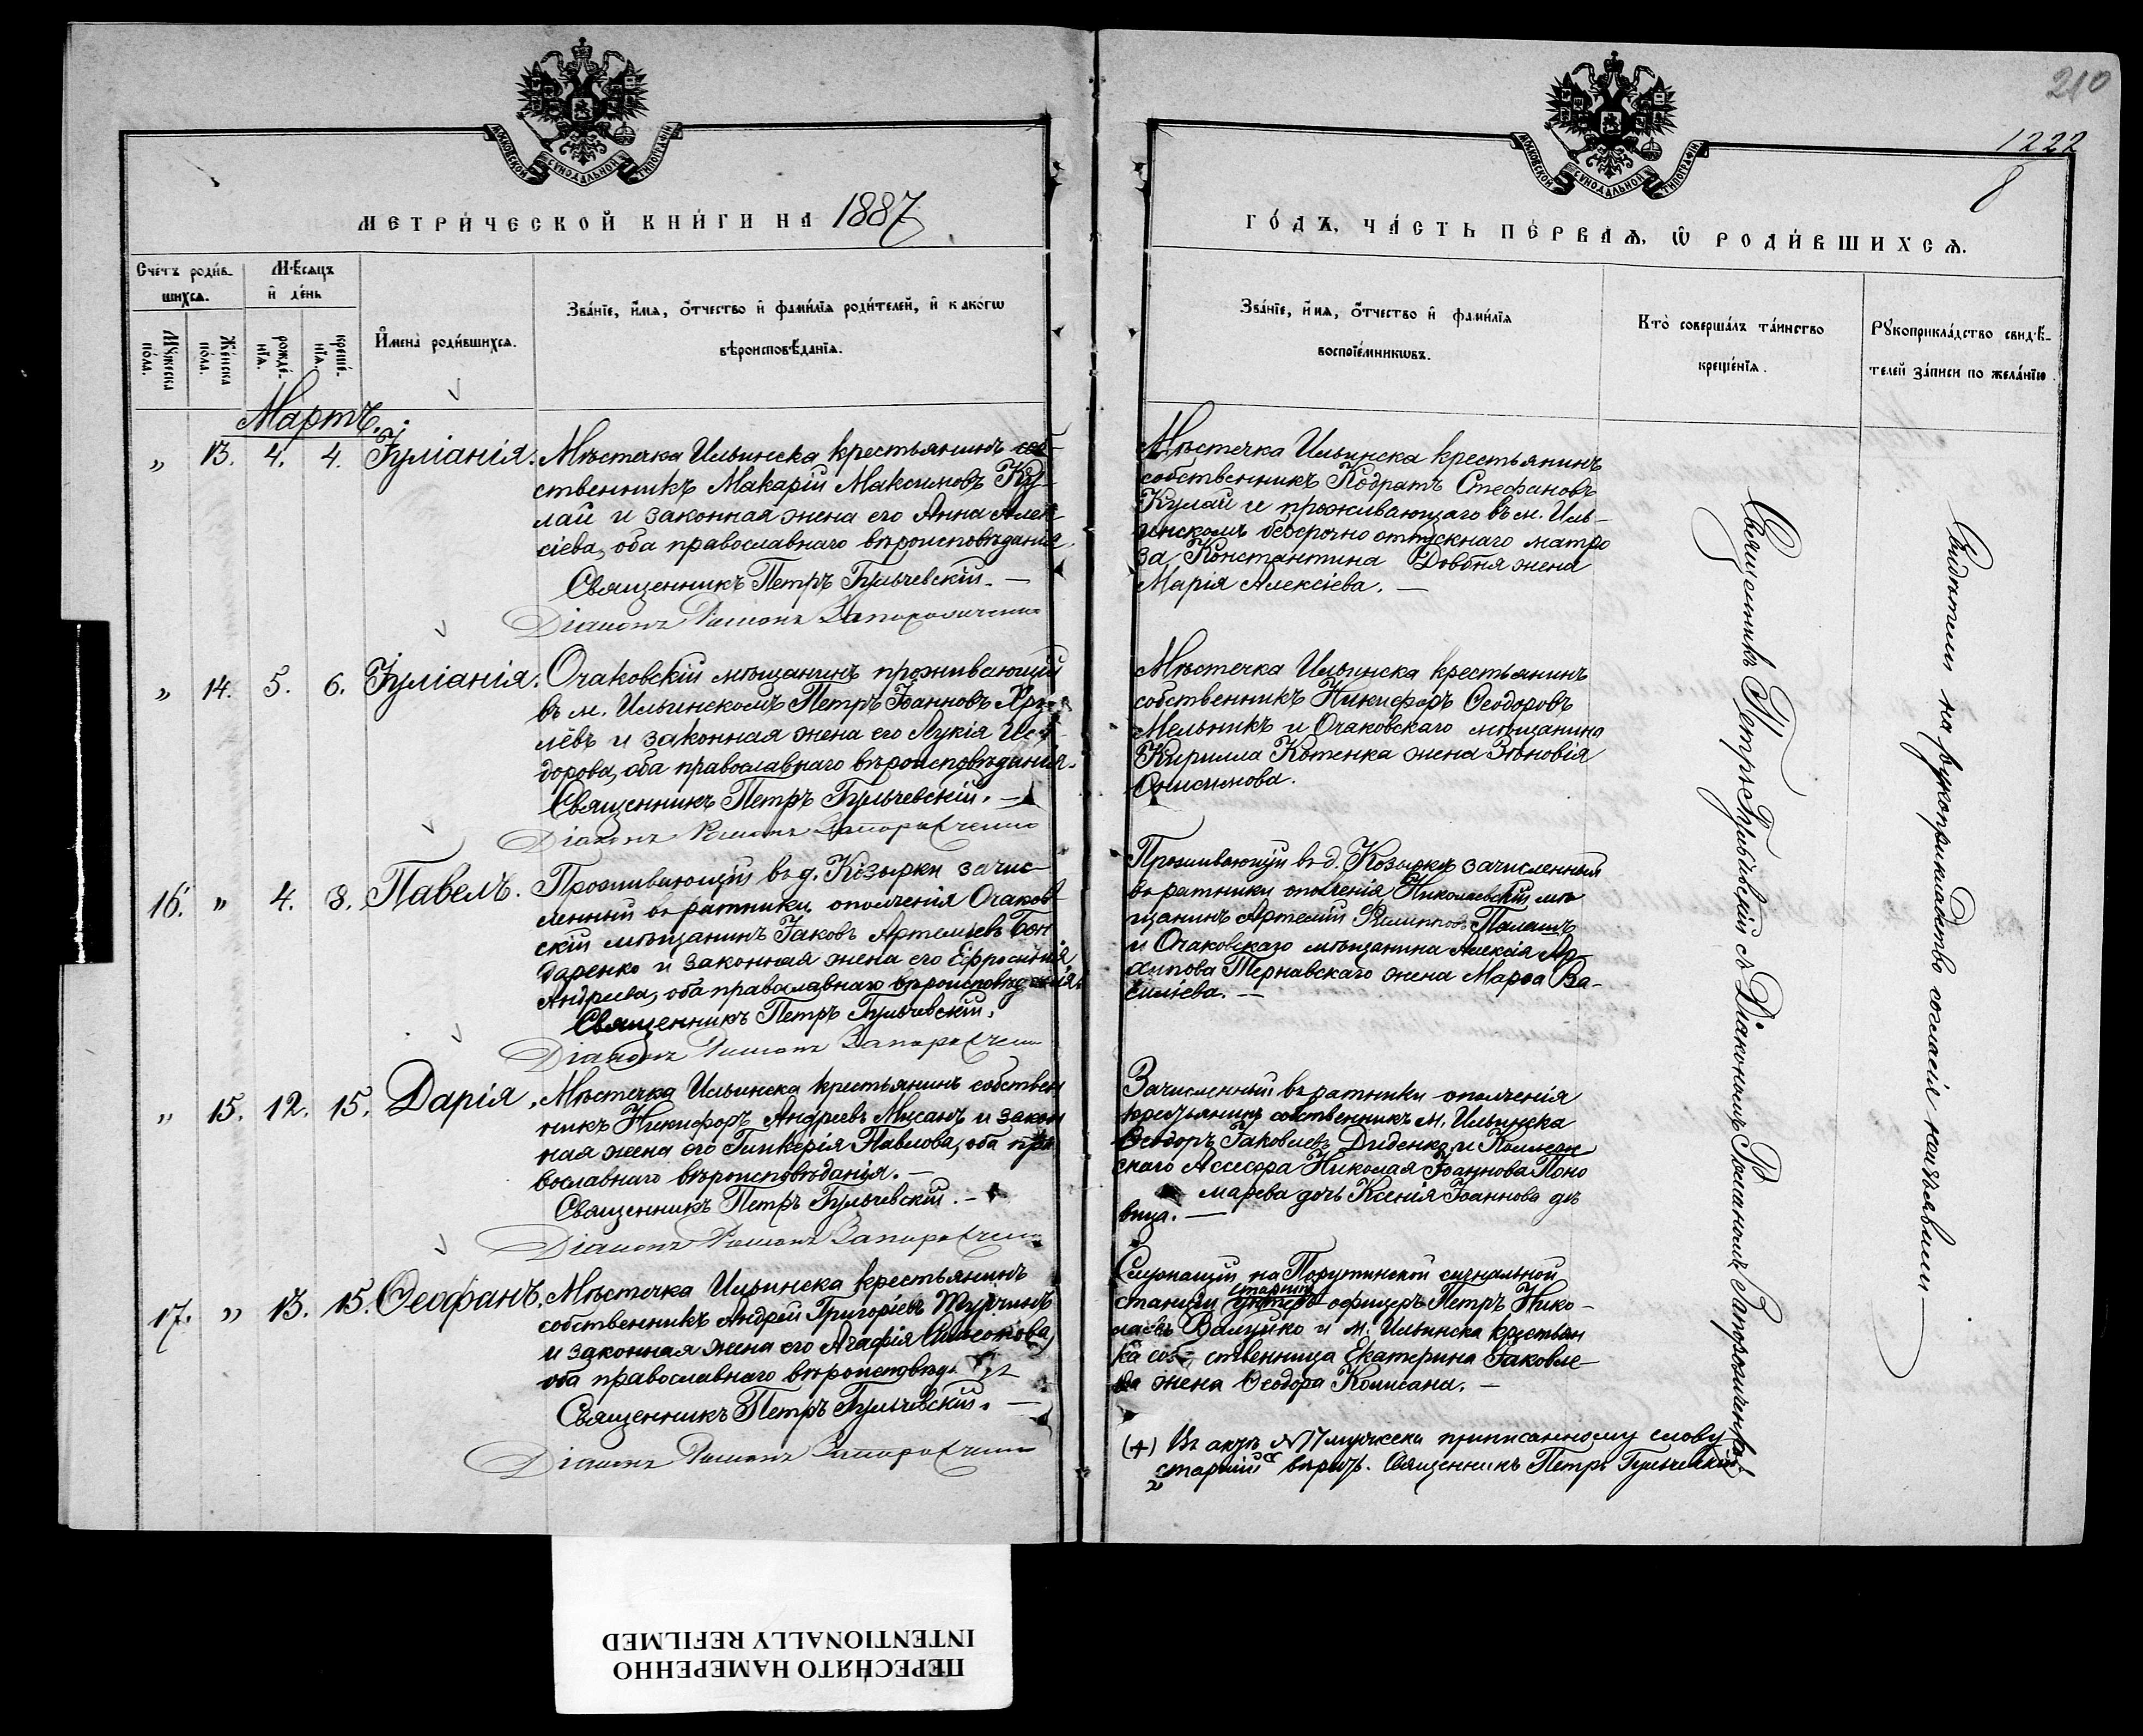 210
1222
8
МОСКОВСКОЙ СѴНОДАЛЬНОЙ ТИПОГРАФІИ
МОСКОВСКОЙ СѴНОДАЛЬНОЙ ТИПОГРАФІИ
МЕТРИ́ЧЕСКОЙ КНИ́ГИ НА 1887
ГО́ДЪ, ЧА́СТЬ ПЕ́РВАѦ, Ѡ҆ РОДИ́ВШИХСѦ.
Сче́тъ роди́в-
шихсѧ.
Мѣ́сѧцъ
и҆ де́нь
Мꙋ́жеска
по́ла.
Же́нска
по́ла.
рожде́-
нїѧ.
креще́-
нїѧ.
И҆мена̀ роди́вшихсѧ.
Зва́нїе, и҆́мѧ, ѻ҆́тчество и҆ фамилїѧ роди́телей, и҆ како́гѡ
вѣроисповѣ́данїѧ.
Зва́нїе, и҆́мѧ, ѻ҆́тчество и҆ фами́лїѧ
воспрїе́мникѡвъ.
Кто̀ соверша́лъ та́инство
креще́нїѧ.
Рꙋкоприкла́дство свидѣ́-
телей за́писи по жела́нїю.
Мартъ.
„ 13. 4. 4. Іуліанія.
Мѣстечка Ильинска крестьянинъ соб-
ственникъ Макарій Максимовъ Ку-
лай и законная жена его Анна Алек-
сіева, оба православнаго вѣроисповѣданія
Священникъ Петръ Бульчевскій. —
Діаконъ Романъ Запорожченко
Мѣстечка Ильинска крестьянинъ
собственникъ Кодратъ Стефановъ
Кулай и проживающаго въ м. Иль-
инскомъ безсрочно отпускнаго матро
за Константина Довбня жена
Марія Алексіева. —
„ 14. 5. 6. Іуліанія.
Очаковскій мѣщанинъ проживающій
въ м. Ильинскомъ Петръ Іоанновъ
левъ и законная жена его Лукія Иси-
дорова, оба православнаго вѣроисповѣданія.
Священникъ Петръ Бульчевскій. —
Діаконъ Романъ Запорожченко
Мѣстечка Ильинска крестьянинъ
собственникъ Никифоръ Ѳеодоровъ
Мельникъ и Очаковскаго мѣщанина
Кирилла Котенка жена Зѣновія
Онисимова.
16. „ 4. 8. Павелъ.
Проживающій въ д. Козырки зачис-
ленный въ ратники ополченія Очаков-
скій мѣщанинъ Іаковъ Артеміевъ Бон
даренко и законная жена его Ефросинія
Андреева, оба православнаго вѣроисповѣданія.
Священникъ Петръ Бульчевскій.
Діаконъ Романъ Запорожченко
Проживающій въ д. Козырки зачисленный
въ ратники ополченія Николаевскій мѣ
щанинъ Артемій Филипповъ
и Очаковскаго мѣщанина Алексія Ар-
хипова Тернавскаго жена Марѳа Ва-
силіева. —
„ 15. 12. 15. Дарія.
Мѣстечка Ильинска крестьянинъ собствен
никъ Никифоръ Андреевъ Мисанъ и закон
ная жена его Гликерія Павлова, оба пра
вославнаго вѣроисповѣданія. —
Священникъ Петръ Бульчевскій. —
Діаконъ Романъ Запорожченко
Зачисленный въ ратники ополченія
крестьянинъ собственникъ м. Ильинска
Ѳеодоръ Іаковлевъ Диденко и Коллеж
скаго Ассесора Николая Іоаннова Поно
марева дочь Ксенія Іоаннова дѣ
вица. —
17. „ 13. 15. Ѳеофанъ.
Мѣстечка Ильинска крестьянинъ
собственникъ Андрей Григоріевъ Турчинъ
и законная жена его Агафія Симеонова,
оба православнаго вѣроисповѣд
Священникъ Петръ Бульчевскій. —
Діаконъ Романъ Запорожченко
Служащій на Порутинской сигнальной
старшій
станціи унтеръ офицеръ Петръ Нико-
лаевъ Валуйко и м. Ильинска крестьян
ка соб- ственница Екатерина Іаковле-
ва жена Ѳеодора Комисана. —
(+) Въ актѣ №17 мужеска приписанному слову
„старшій“ вѣрить. Священникъ Петръ Бульчевскій
Священникъ Петръ Бульчевскій съ Діакономъ Романомъ Запорожченкой
Свидѣтели на рукоприкладство согласія не изъявили —
ПЕРЕСНЯТО НАМЕРЕННО
INTENTIONALLY REFILMED